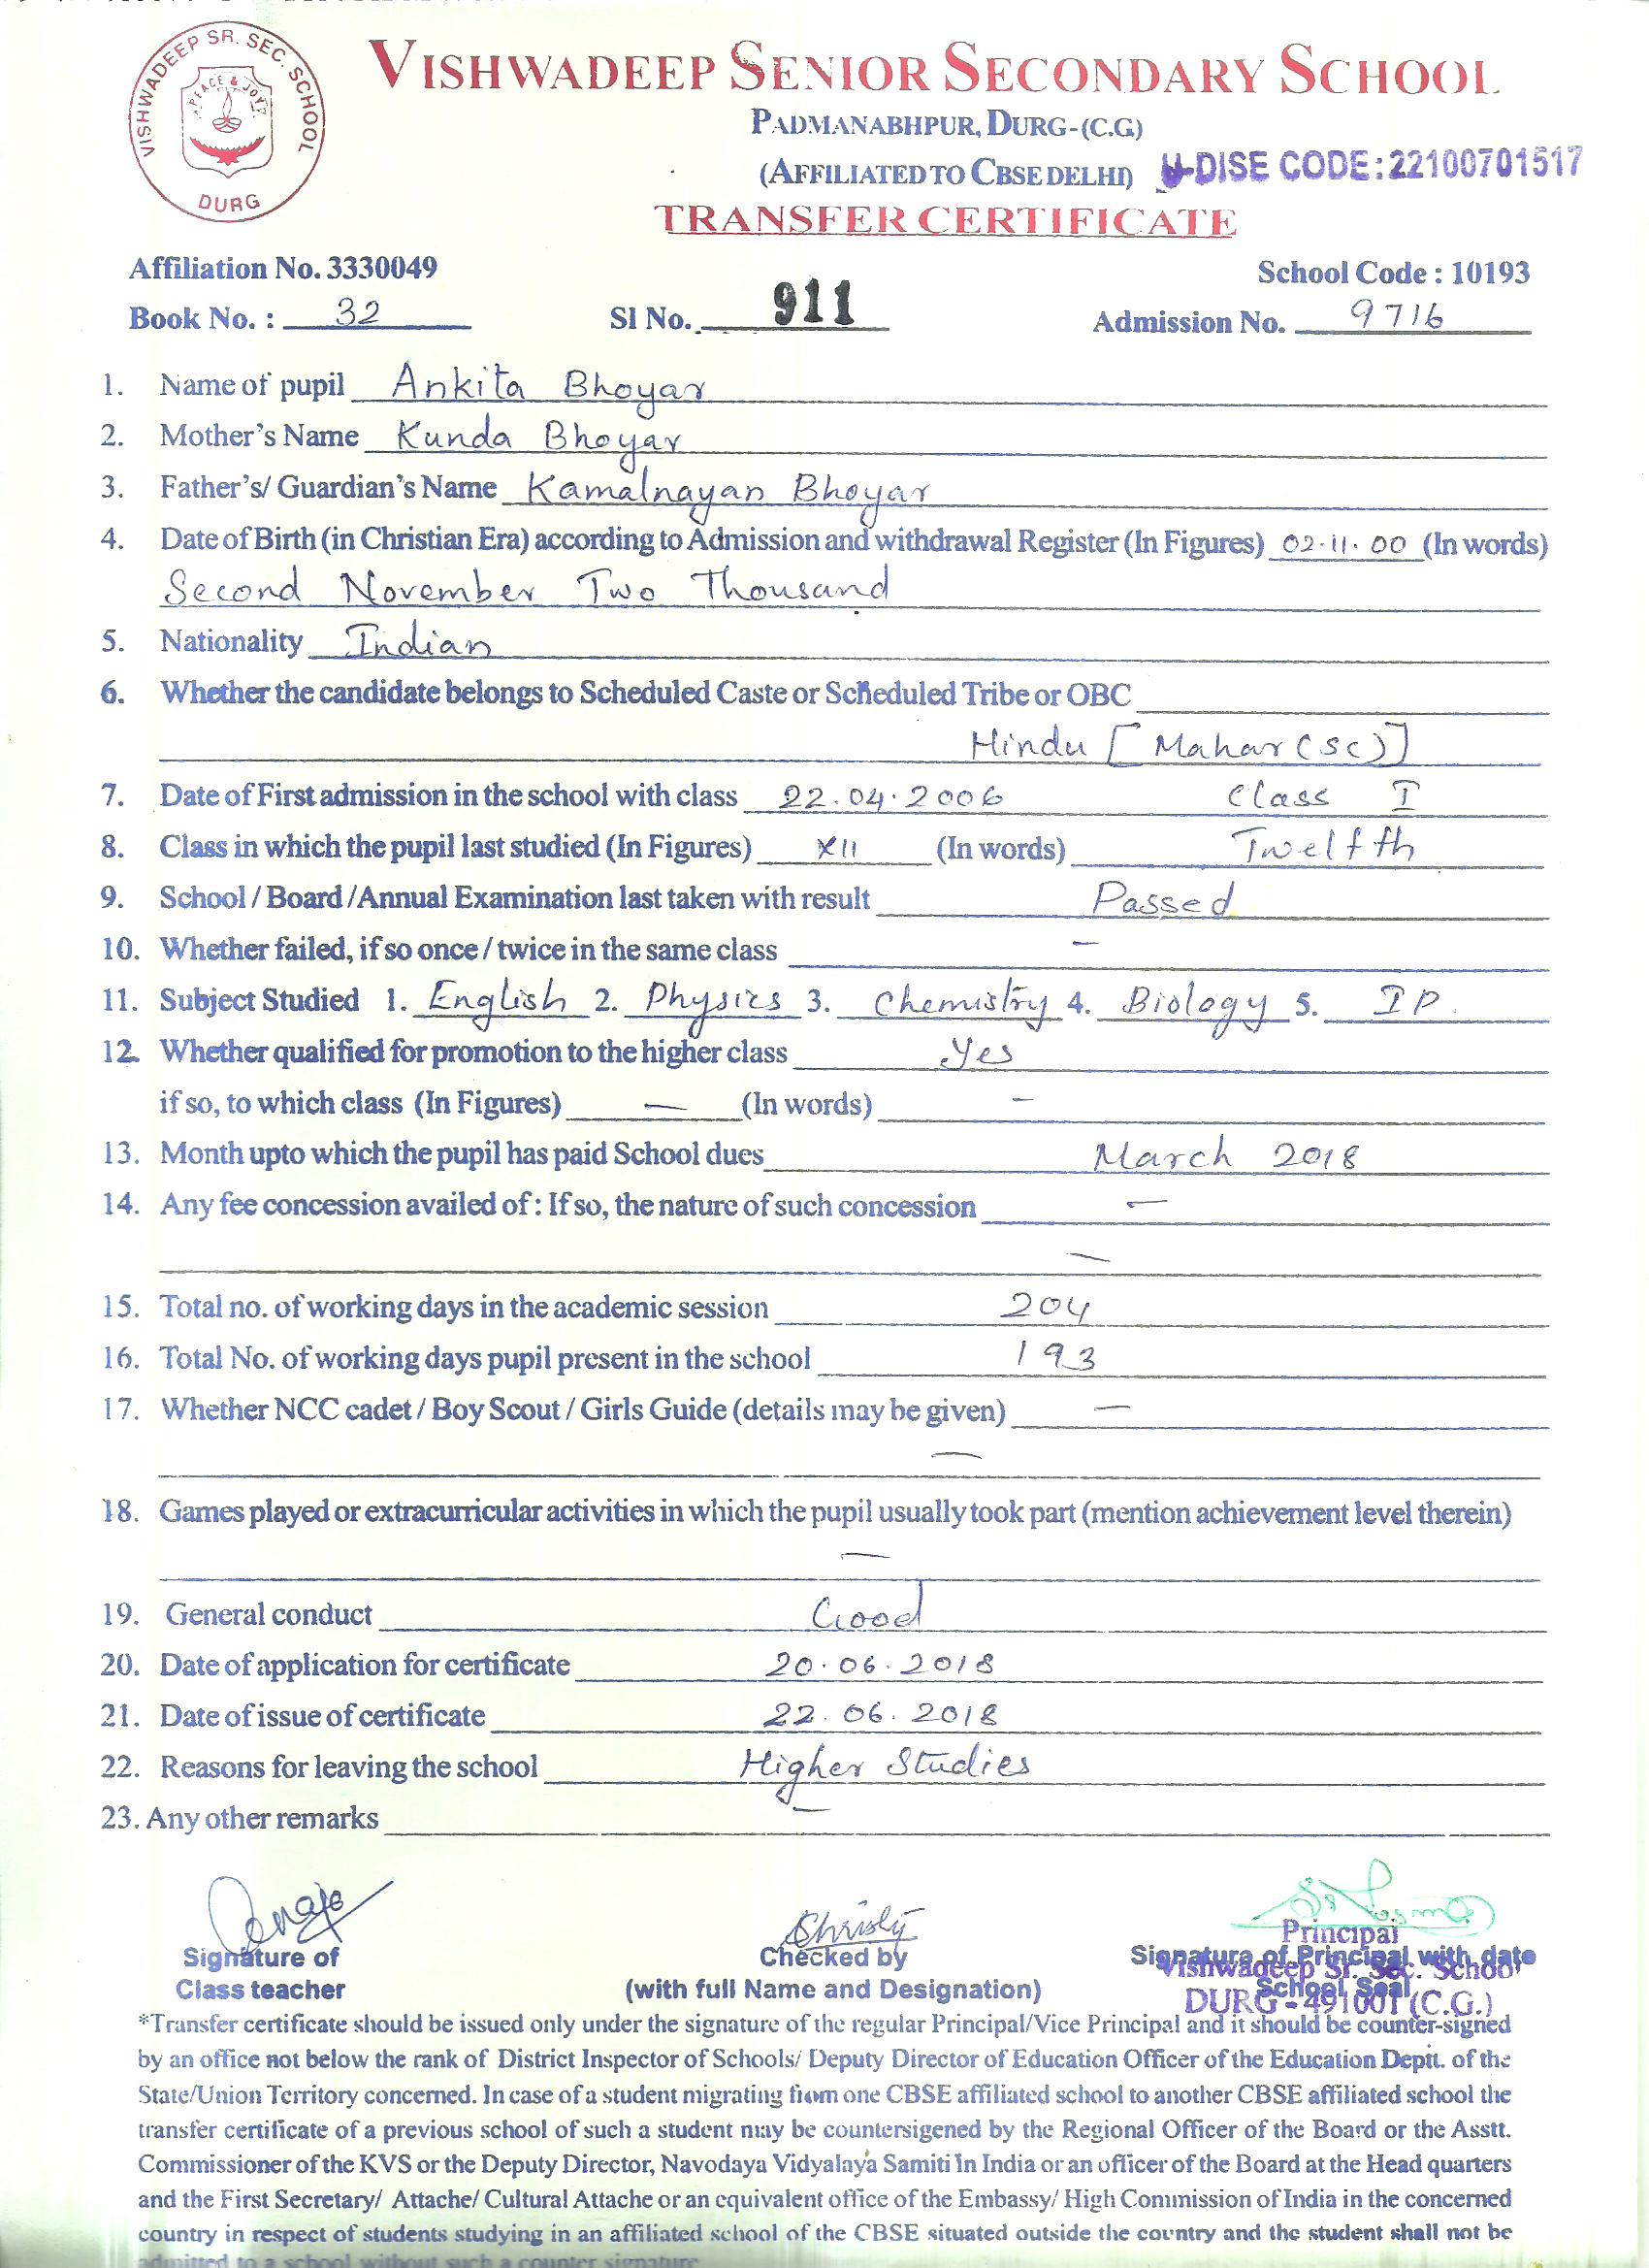 VISHWADEEP SR. SEC. SCHOOL
PEACE & JOY
DURG
VISHWADEEP SENIOR SECONDARY SCHOOL
PADMANABHPUR, DURG-(C.G.)
(AFFILIATED TO CBSE DELHI) U-DISE CODE:22100701517
TRANSFER CERTIFICATE
Affiliation No. 3330049 School Code : 10193
Book No. : 32 Sl No. 911 Admission No. 9716
1. Name of pupil Ankita Bhoyar
2. Mother's Name Kunda Bhoyar
3. Father's/ Guardian's Name Kamalnayan Bhoyar
4. Date of Birth (in Christian Era) according to Admission and withdrawal Register (In Figures) 02.11.00 (In words)
Second November Two Thousand
5. Nationality Indian
6. Whether the candidate belongs to Scheduled Caste or Scheduled Tribe or OBC
Hindu [Mahar (SC)]
7. Date of First admission in the school with class 22.04.2006 Class I
8. Class in which the pupil last studied (In Figures) XII (In words) Twelfth
9. School / Board /Annual Examination last taken with result Passed
10. Whether failed, if so once / twice in the same class —
11. Subject Studied 1. English 2. Physics 3. Chemistry 4. Biology 5. IP
12. Whether qualified for promotion to the higher class Yes
if so, to which class (In Figures) — (In words) —
13. Month upto which the pupil has paid School dues March 2018
14. Any fee concession availed of : If so, the nature of such concession —
—
15. Total no. of working days in the academic session 204
16. Total No. of working days pupil present in the school 193
17. Whether NCC cadet / Boy Scout / Girls Guide (details may be given) —
—
18. Games played or extracurricular activities in which the pupil usually took part (mention achievement level therein)
—
19. General conduct Good
20. Date of application for certificate 20.06.2018
21. Date of issue of certificate 22.06.2018
22. Reasons for leaving the school Higher Studies
23. Any other remarks —
Principal
Signature of Checked by Signature of Principal with date
Vishwadeep Sr. Sec. School
Class teacher (with full Name and Designation) School Seal
DURG - 491001 (C.G.)
*Transfer certificate should be issued only under the signature of the regular Principal/Vice Principal and it should be counter-signed
by an office not below the rank of District Inspector of Schools/ Deputy Director of Education Officer of the Education Deptt. of the
State/Union Territory concerned. In case of a student migrating from one CBSE affiliated school to another CBSE affiliated school the
transfer certificate of a previous school of such a student may be countersigned by the Regional Officer of the Board or the Asstt.
Commissioner of the KVS or the Deputy Director, Navodaya Vidyalaya Samiti in India or an officer of the Board at the Head quarters
and the First Secretary/ Attache/ Cultural Attache or an equivalent office of the Embassy/ High Commission of India in the concerned
country in respect of students studying in an affiliated school of the CBSE situated outside the country and the student shall not be
admitted to a school without such a counter signature